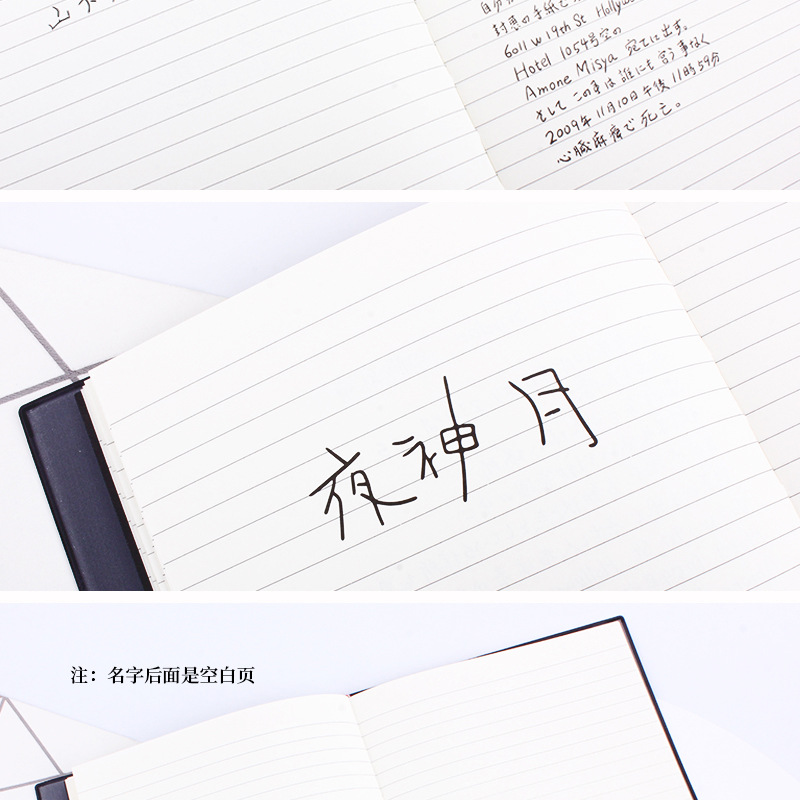 封悪の手紙で
6011 W 19th St Hollyw
Hotel 1054号室の
Amone Misya 宛てに出す。
そして この事は誰にも言う事なく
2009年 11月10日 午後 11時59分
心臓麻痺で 死亡。
夜神 月
注：名字后面是空白页